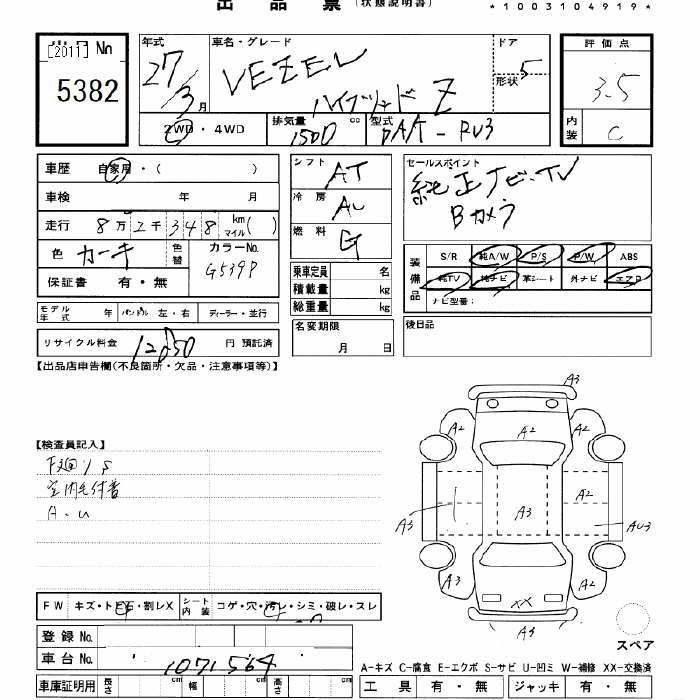 出 品 票 (状態説明書)
*1003104919*
出品 No [2011]
5382
年式 27/3月
車名・グレード VEZEL ハイブリッド Z
ドア 形状 5
2WD・4WD
排気量 1500 cc
型式 DAA-RU3
評価点 3.5
内装 C
車歴 自家用・( )
車検 年 月
走行 8万2千348 km マイル( )
色 カーキ 色替
カラーNo. G539P
保証書 有・無
シフト AT
冷房 AC
燃料 G
乗車定員 名
積載量 kg
総重量 kg
セールスポイント
純正ナビ・TV
Bカメラ
装備品
S/R 純A/W P/S P/W ABS
純TV 純ナビ 革シート 外ナビ エアロ
ナビ型番:
モデル年式 年 ハンドル 左・右 ディーラー・並行
リサイクル料金 円 預託済
名変期限 月 日
後日品
【出品店申告欄(不良箇所・欠品・注意事項等)】
【検査員記入】
下廻りS
室内毛付着
A.U
A3
A2 A2 A2
A2
A3 A3 AU3
A3 A2
XX
A3
スペア
FW キズ・トビ石・割レX
シート内装 コゲ・穴・汚レ・シミ・破レ・スレ
登録 No.
車台 No. 1071564
A-キズ C-腐食 E-エクボ S-サビ U-凹ミ W-補修 XX-交換済
車庫証明用 長さ cm 幅 cm 高さ cm
工具 有・無 ジャッキ 有・無